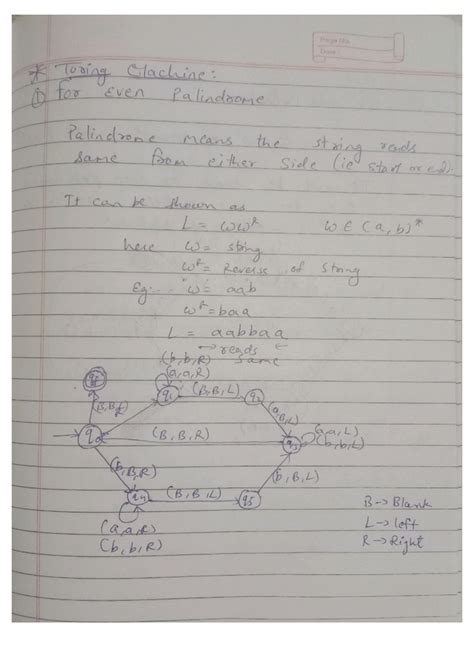 Page No.
Date
* Turing Machine:
① for Even Palindrome
Palindrome means the string reads
same from either side (ie start or end).
It can be shown as
L = ww^R w ∈ (a, b)*
here w = string
w^R = Reverse of string
Eg:- w = aab
w^R = baa
L = aabbaa
→ reads ←
same
(b, b, R)
(a, a, R)
(B, B, L)
q1
q2
(B, B,
(a, B, L)
(a, a, L)
(b, b, L)
(B, B, R)
q3
(b, B, R)
(b, B, L)
q4
(B, B, L)
q5
(a, a, R)
(b, b, R)
B → Blank
L → left
R → Right